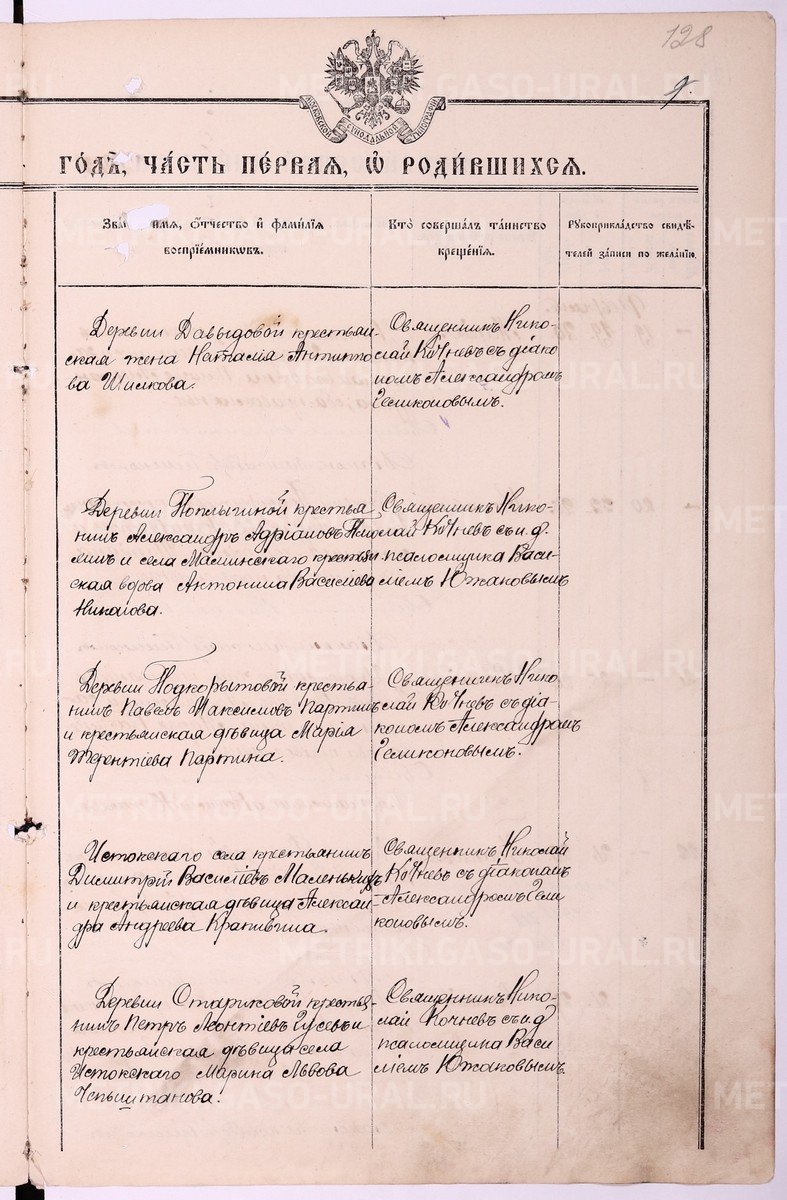 128
9.
МОСКОВСКОЙ СѴНОДАЛЬНОЙ ТИПОГРАФІИ
ГОДЪ, ЧАСТЬ ПЕРВАЯ, Ѿ РОДИВШИХСЯ.
имя, отчество и фамилія
воспріемниковъ.
Кто совершалъ таинство
крещенія.
Рукоприкладство свидѣ-
телей записи по желанію.
Деревни Давыдовой крестьян-
ская жена Наталія Антипо
ва Шилкова.
Священникъ Нико-
лай Кочневъ съ діако
номъ Александромъ
Геликоновымъ.
Деревни Поплыгиной крестья
нинъ Александръ Адріановъ
и села Маминскаго крестьян-
ская вдова Антонина Василіева
Священникъ Нико-
лай Кочневъ съ и. д.
псаломщика Васи-
ліемъ Южаковымъ
Деревни Подкорытовой крестья-
нинъ Павелъ Максимовъ Партинъ
и крестьянская дѣвица Марія
Терентіева Партина.
Священникъ Нико
лай Кочневъ съ діа-
кономъ Александромъ
Геликоновымъ.
Истокскаго села крестьянинъ
Димитрій Василіевъ Маленькихъ
и крестьянская дѣвица Алексан
дра Андреева Крапивина.
Священникъ Николай
Кочневъ съ діакономъ
Александромъ Гели
коновымъ.
Деревни Стариковой крестья-
нинъ Петръ Леонтіевъ Гусевъ и
крестьянская дѣвица села
Истокскаго Марина Львова
Чепыштанова.
Священникъ Нико-
лай Кочневъ съ и. д
псаломщика Васи
ліемъ Южаковымъ.
METRIKI.GASO-URAL.RU